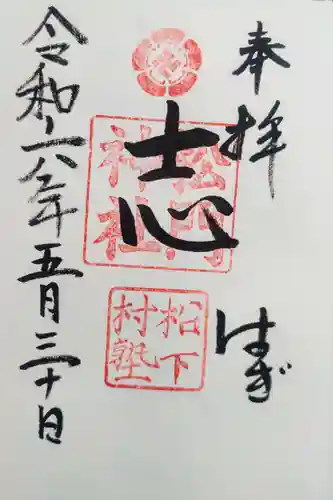 奉拝
はぎ
志
松門
神社
松下
村塾
令和六年五月三十日